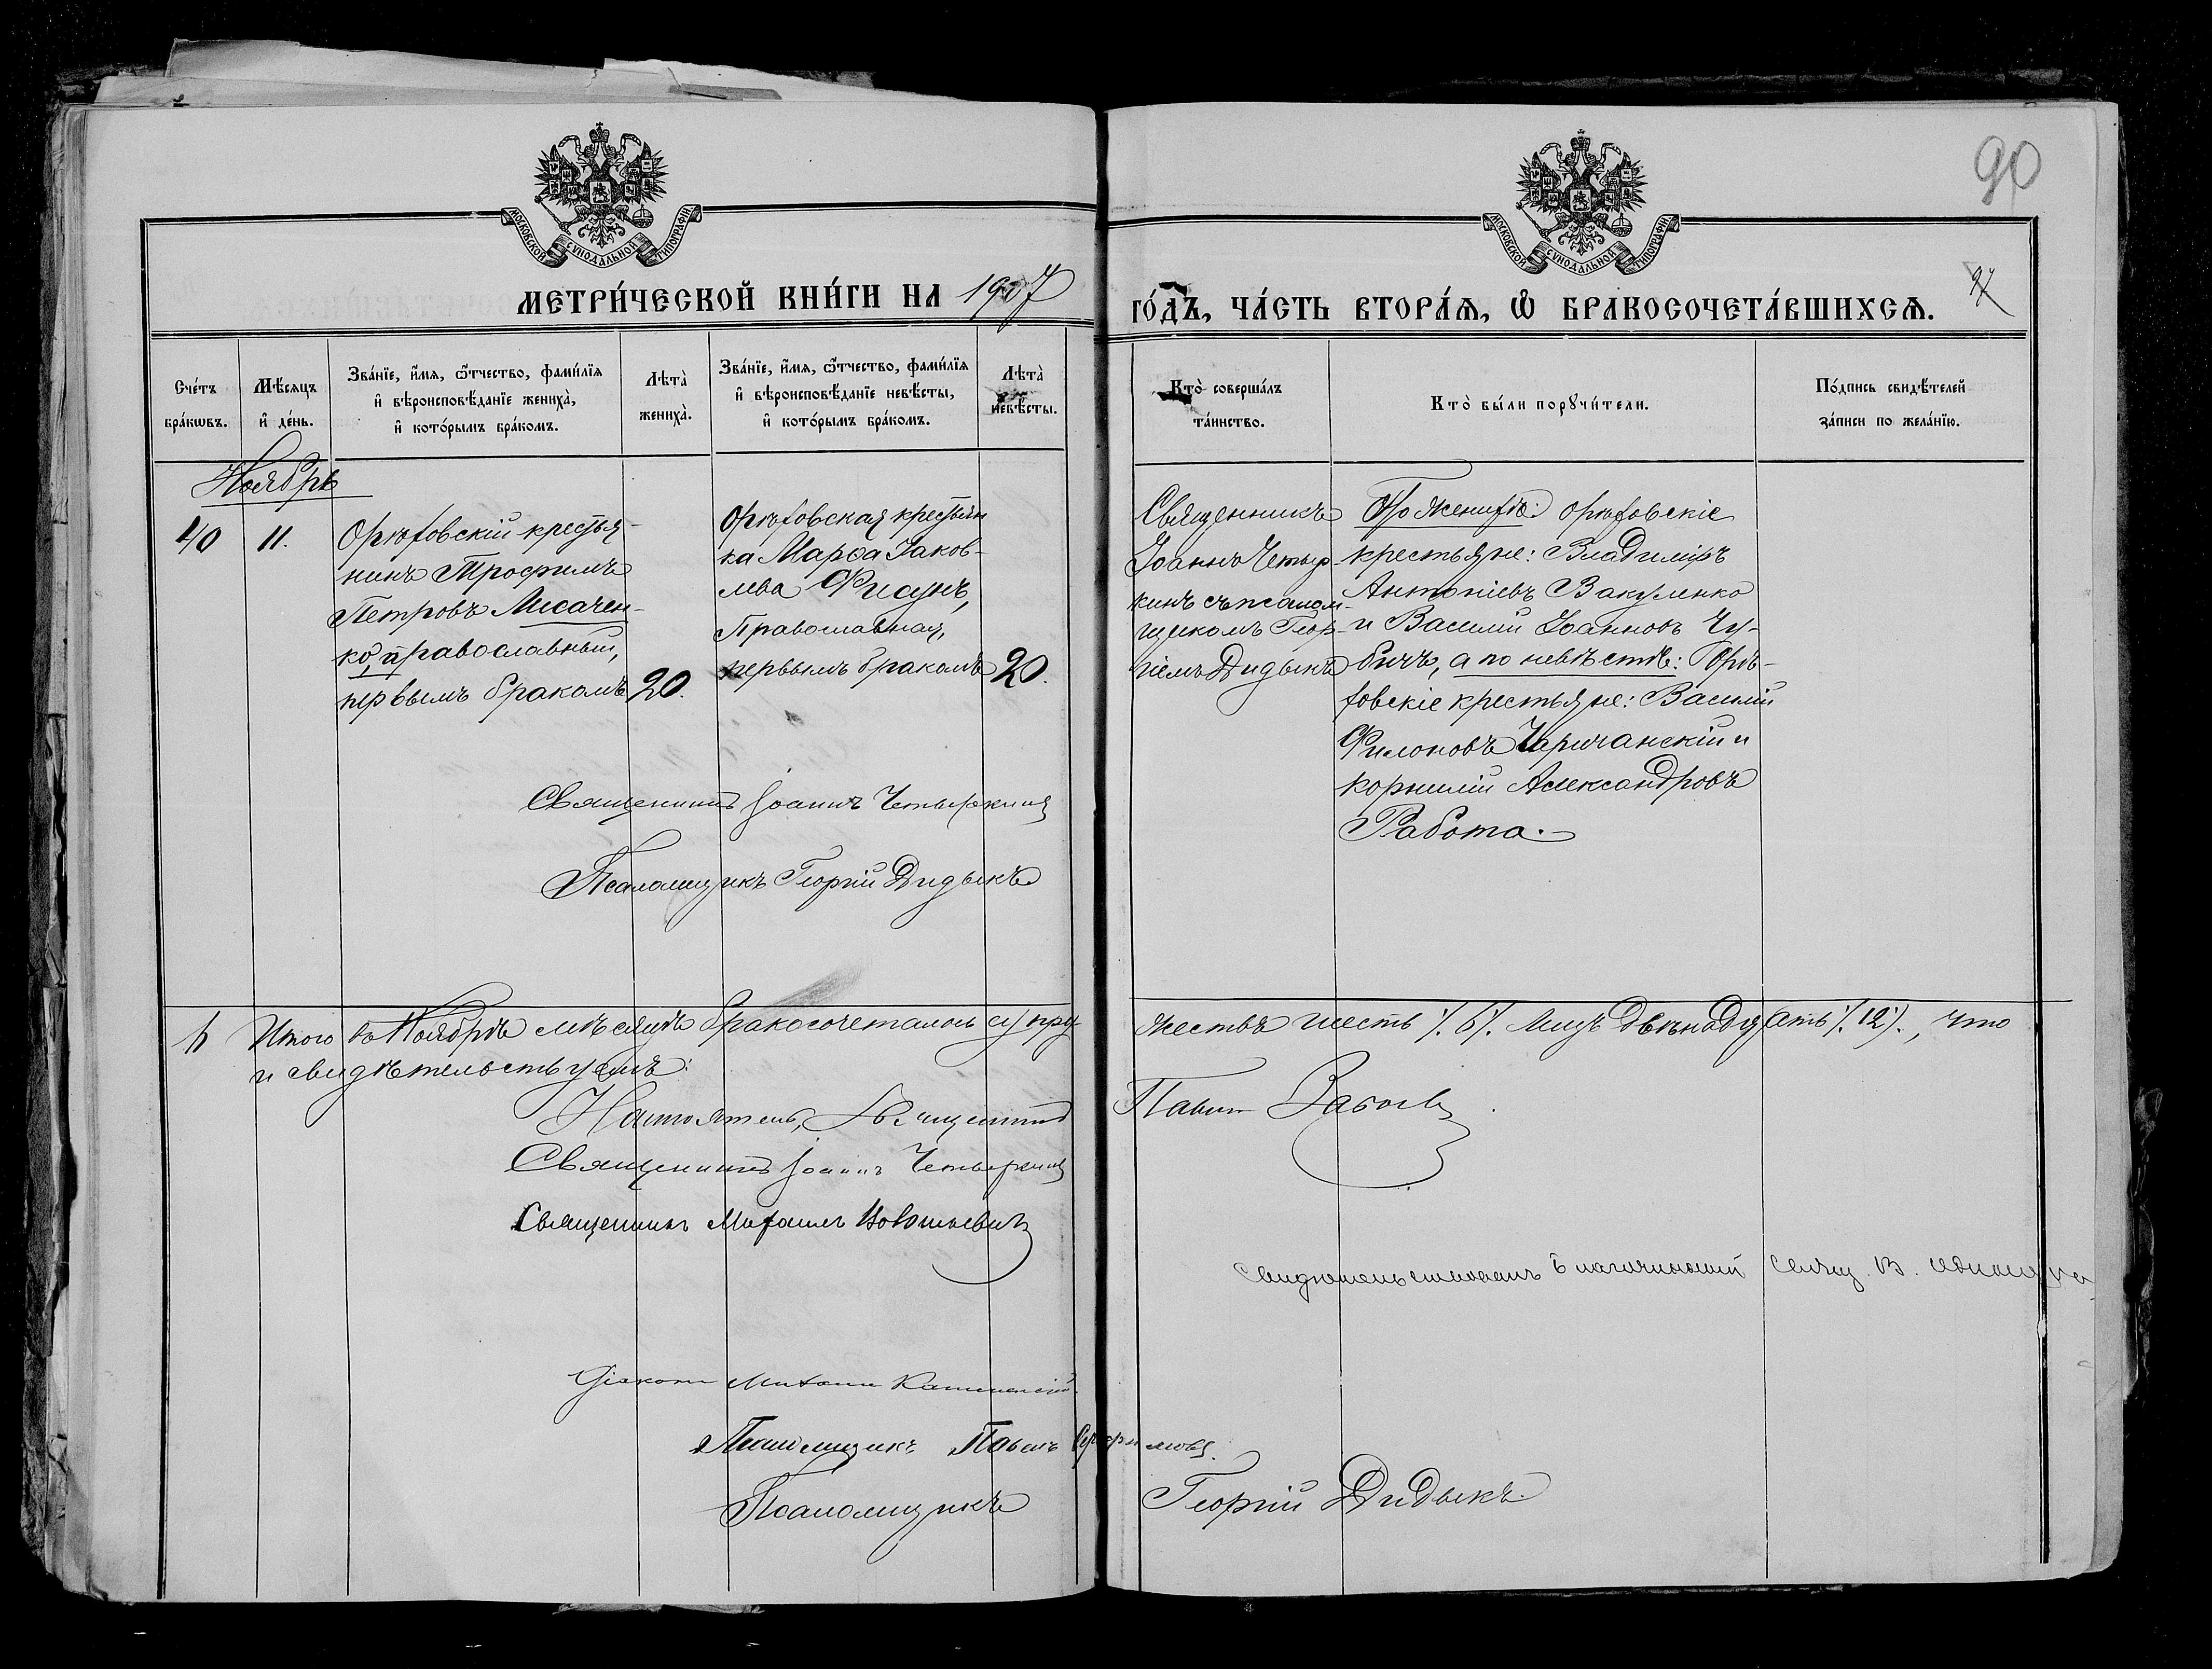 90
МОСКОВСКОЙ СѴНОДАЛЬНОЙ ТИПОГРАФІИ
МОСКОВСКОЙ СѴНОДАЛЬНОЙ ТИПОГРАФІИ
МЕТРИ́ЧЕСКОЙ КНИ́ГИ НА 1907
ГО́ДЪ, ЧА́СТЬ ВТОРА́Ѧ, Ѡ҆ БРАКОСОЧЕТА́ВШИХСѦ.
Сче́тъ
бра́кѡвъ.
Мѣ́сяцъ
и҆ де́нь.
Зва́нїе, и҆́мѧ, ѻ҆́тчество, фами́лїѧ
и҆ вѣроисповѣ́данїе жениха̀,
и҆ кото́рымъ бра́комъ.
Лѣта̀
жениха̀.
Зва́нїе, и҆́мѧ, ѻ҆́тчество, фами́лїѧ
и҆ вѣроисповѣ́данїе невѣ́сты,
и҆ кото́рымъ бра́комъ.
Лѣта̀
невѣ́сты.
Кто̀ соверша́лъ
та́инство.
Кто̀ бы́ли порꙋчи́тели.
По́дпись свидѣ́телей
за́писи по жела́нїю.
Ноябрь
40
11.
Орѣховскій крестья-
нинъ Трофимъ
Петровъ Лисачен-
ко, православный,
первымъ бракомъ
20.
Орѣховская крестьян
ка Марѳа Іаков-
лева Фисунъ,
Православная,
первымъ бракомъ
20.
Священникъ
Іоаннъ Четыр-
кинъ съ псалом-
щикомъ Геор-
гіемъ Дидыкъ
По женихѣ: орѣховскіе
крестьяне: Владиміръ
Антоніевъ Вакуленко
и Василій Іоанновъ Чу-
бичъ, а по невѣстѣ: Орѣ-
ховскіе крестьяне: Василій
Филоновъ Царичанскій и
Корнилій Александровъ
Работа.
Священникъ Іоаннъ Четыркинъ
Псаломщикъ Георгій Дидыкъ
Итого въ Ноябрѣ мѣсяцѣ бракосочеталось супру-
жествъ шесть /. 6 /. лицъ двѣнадцать /. 12 /., что
и свидѣтельствуемъ:
Настоятель, Священникъ
Павелъ
Священникъ Іоаннъ Четыркинъ
Священникъ Михаилъ
Свидѣтельствовалъ благочинный свящ. В.
Діаконъ Михаилъ
Псаломщикъ Павелъ
Псаломщикъ
Георгій Дидыкъ.